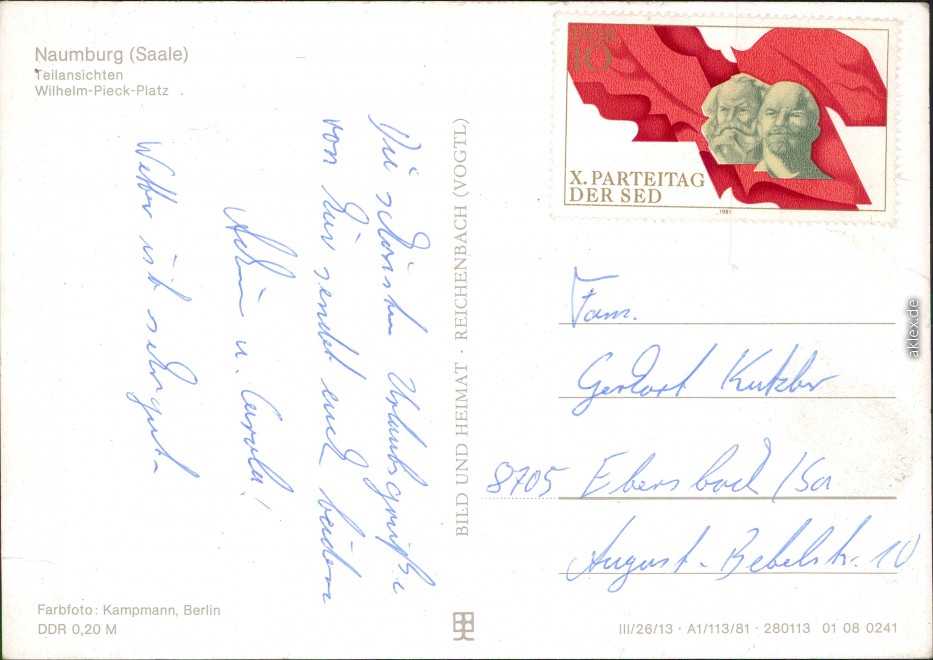 Naumburg (Saale)
Teilansichten
Wilhelm-Pieck-Platz
DDR
10
X. PARTEITAG
DER SED
1981
Die schönsten Urlaubsgrüße
von hier sendet euch beiden
Achim u. Carola!
Wetter ist sehr gut.
BILD UND HEIMAT · REICHENBACH (VOGTL)
Fam.
Gerhart
8705 Ebersbach / Sa
August-Bebelstr. 10
Farbfoto: Kampmann, Berlin
DDR 0,20 M
III/26/13 · A1/113/81 · 280113 01 08 0241
aklex.de